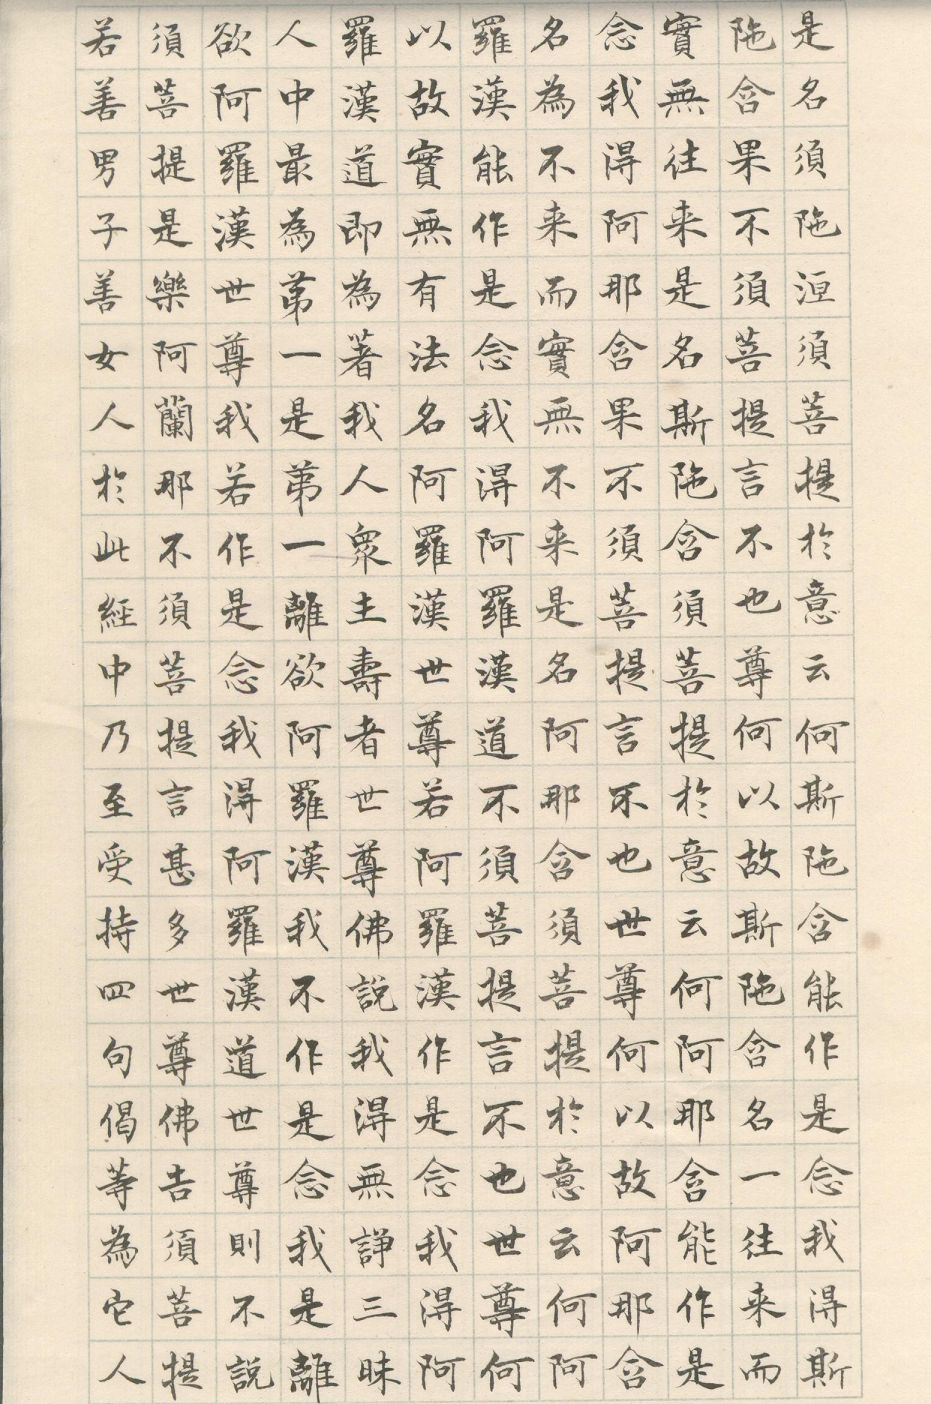 是名須陁洹須菩提於意云何斯陁含能作是念我得斯
陁含果不須菩提言不也尊何以故斯陁含名一往来而
實無往来是名斯陁含須菩提於意云何阿那含能作是
念我得阿那含果不須菩提言不也世尊何以故阿那含
名為不来而實無不来是名阿那含須菩提於意云何阿
羅漢能作是念我得阿羅漢道不須菩提言不也世尊何
以故實無有法名阿羅漢世尊若阿羅漢作是念我得阿
羅漢道即為著我人衆主壽者世尊佛說我得無諍三昧
人中最為第一是第一離欲阿羅漢我不作是念我是離
欲阿羅漢世尊我若作是念我得阿羅漢道世尊則不說
須菩提是樂阿蘭那不須菩提言甚多世尊佛告須菩提
若善男子善女人於此經中乃至受持四句偈等為它人